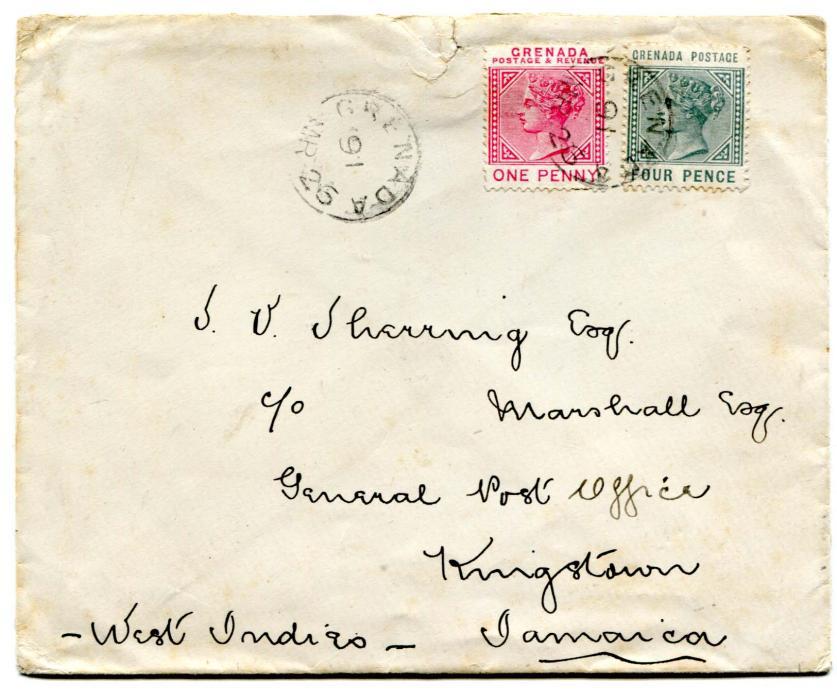 GRENADA
POSTAGE & REVENUE
ONE PENNY
GRENADA POSTAGE
FOUR PENCE
GRENADA
91
MR 20
J. V. Sherring Esq.
c/o Marshall Esq.
General Post Office
Kingstown
- West Indies - Jamaica